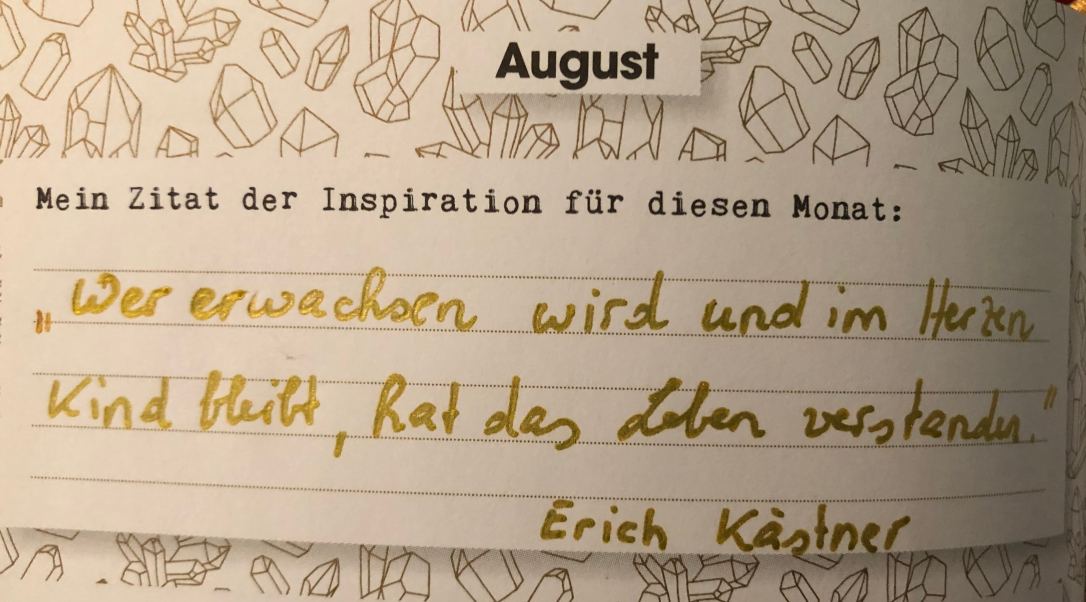 August
Mein Zitat der Inspiration für diesen Monat:
„Wer erwachsen wird und im Herzen
Kind bleibt, hat das Leben verstanden."
Erich Kästner